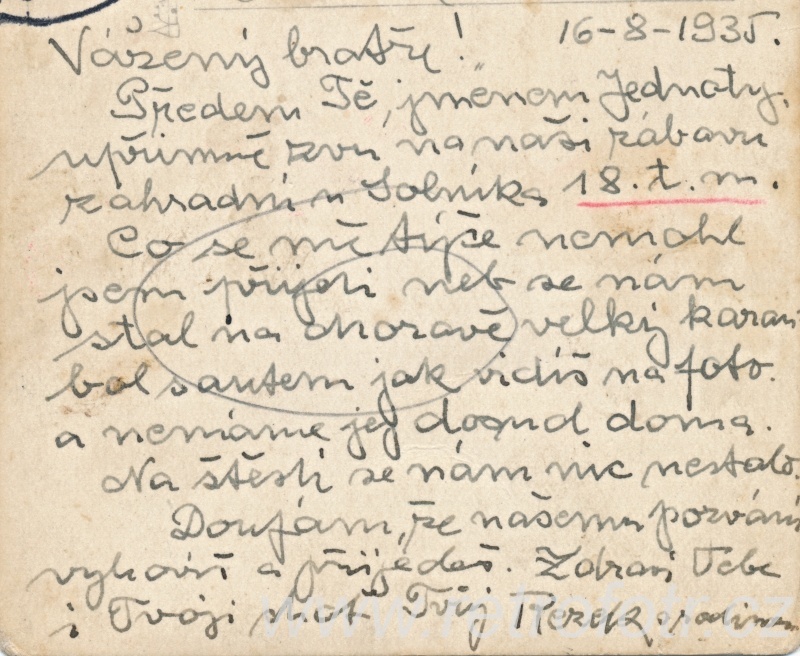 16-8-1935.
Vážený bratře!
Předem Tě, jménem Jednoty,
upřímně zvu na naši zábavu
zahradní u Solníka 18.t.m.
Co se mě týče nemohl
jsem přijeti neb se nám
stal na Moravě velký karam
bol s autem jak vidíš na foto.
a nemáme jej dosud doma.
Na štěstí se nám nic nestalo.
Doufám, že našemu pozvání
vyhovíš a přijedeš. Zdraví Tebe
i Tvoji choť Tvůj Rezek s rodinou